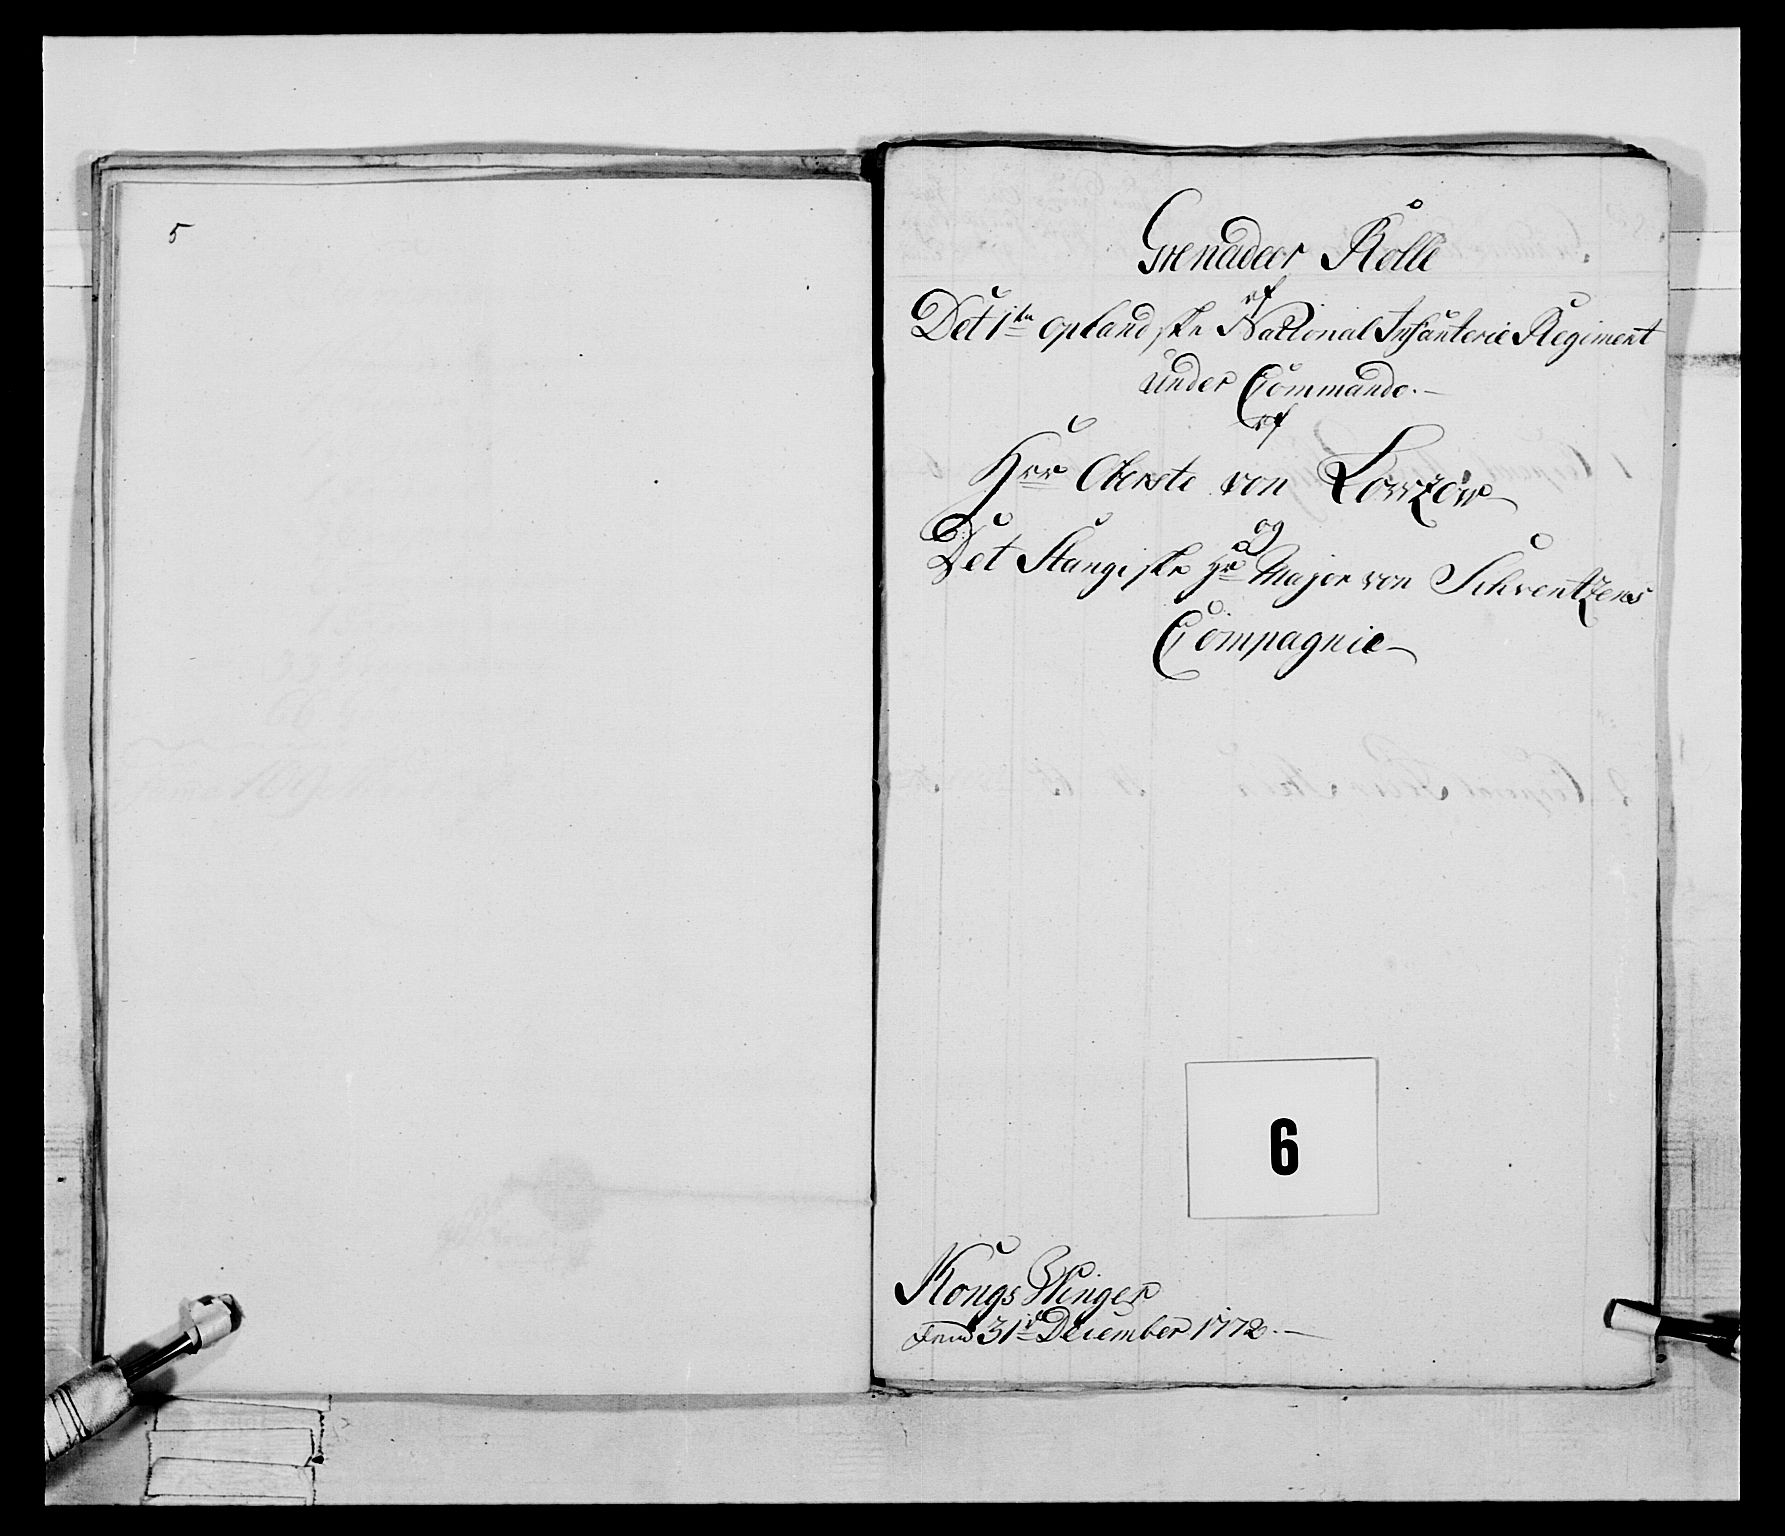 5
Grenadeer Rolle
af
Det 1ste oplandske National Infanterie Regiment
under Commando.—
af
Hrr Oberste von Lowzow
og
Det Stangeske Hr Major von Schventzens
Compagnie
6
Kongs Winger
Dend 31te December 1772.—